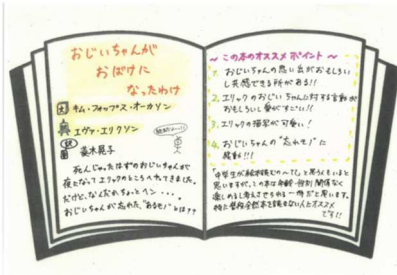 おじいちゃんが
おばけに
なったわけ
文 キム・フォップス・オーカソン
エヴァ・エリクソン
訳 菱木晃子
死んじゃったはずのおじいちゃんが
夜になってエリックのところへやてきました。
だけど、なんだかちょっとヘン・・・。
おじいちゃんが忘れた、"あるモノ"とは??
~ この本のオススメ ポイント ~
1. おじいちゃんの思い出がおもしろい
し共感できる所がある!!
2. エリックのおじいちゃんに対する言動が
おもしろいし愛がすごい!!
3. エリックの描写が可愛い!
4. おじいちゃんの"忘れモノ"に
感動!!!
「中学生が絵本読むの〜?」と思う人もいると
思いますが、この本は年齢・性別関係なく
楽しめるし考えさせられる一冊だと思います。
特に普段全然本を読まない人にオススメ
です!!